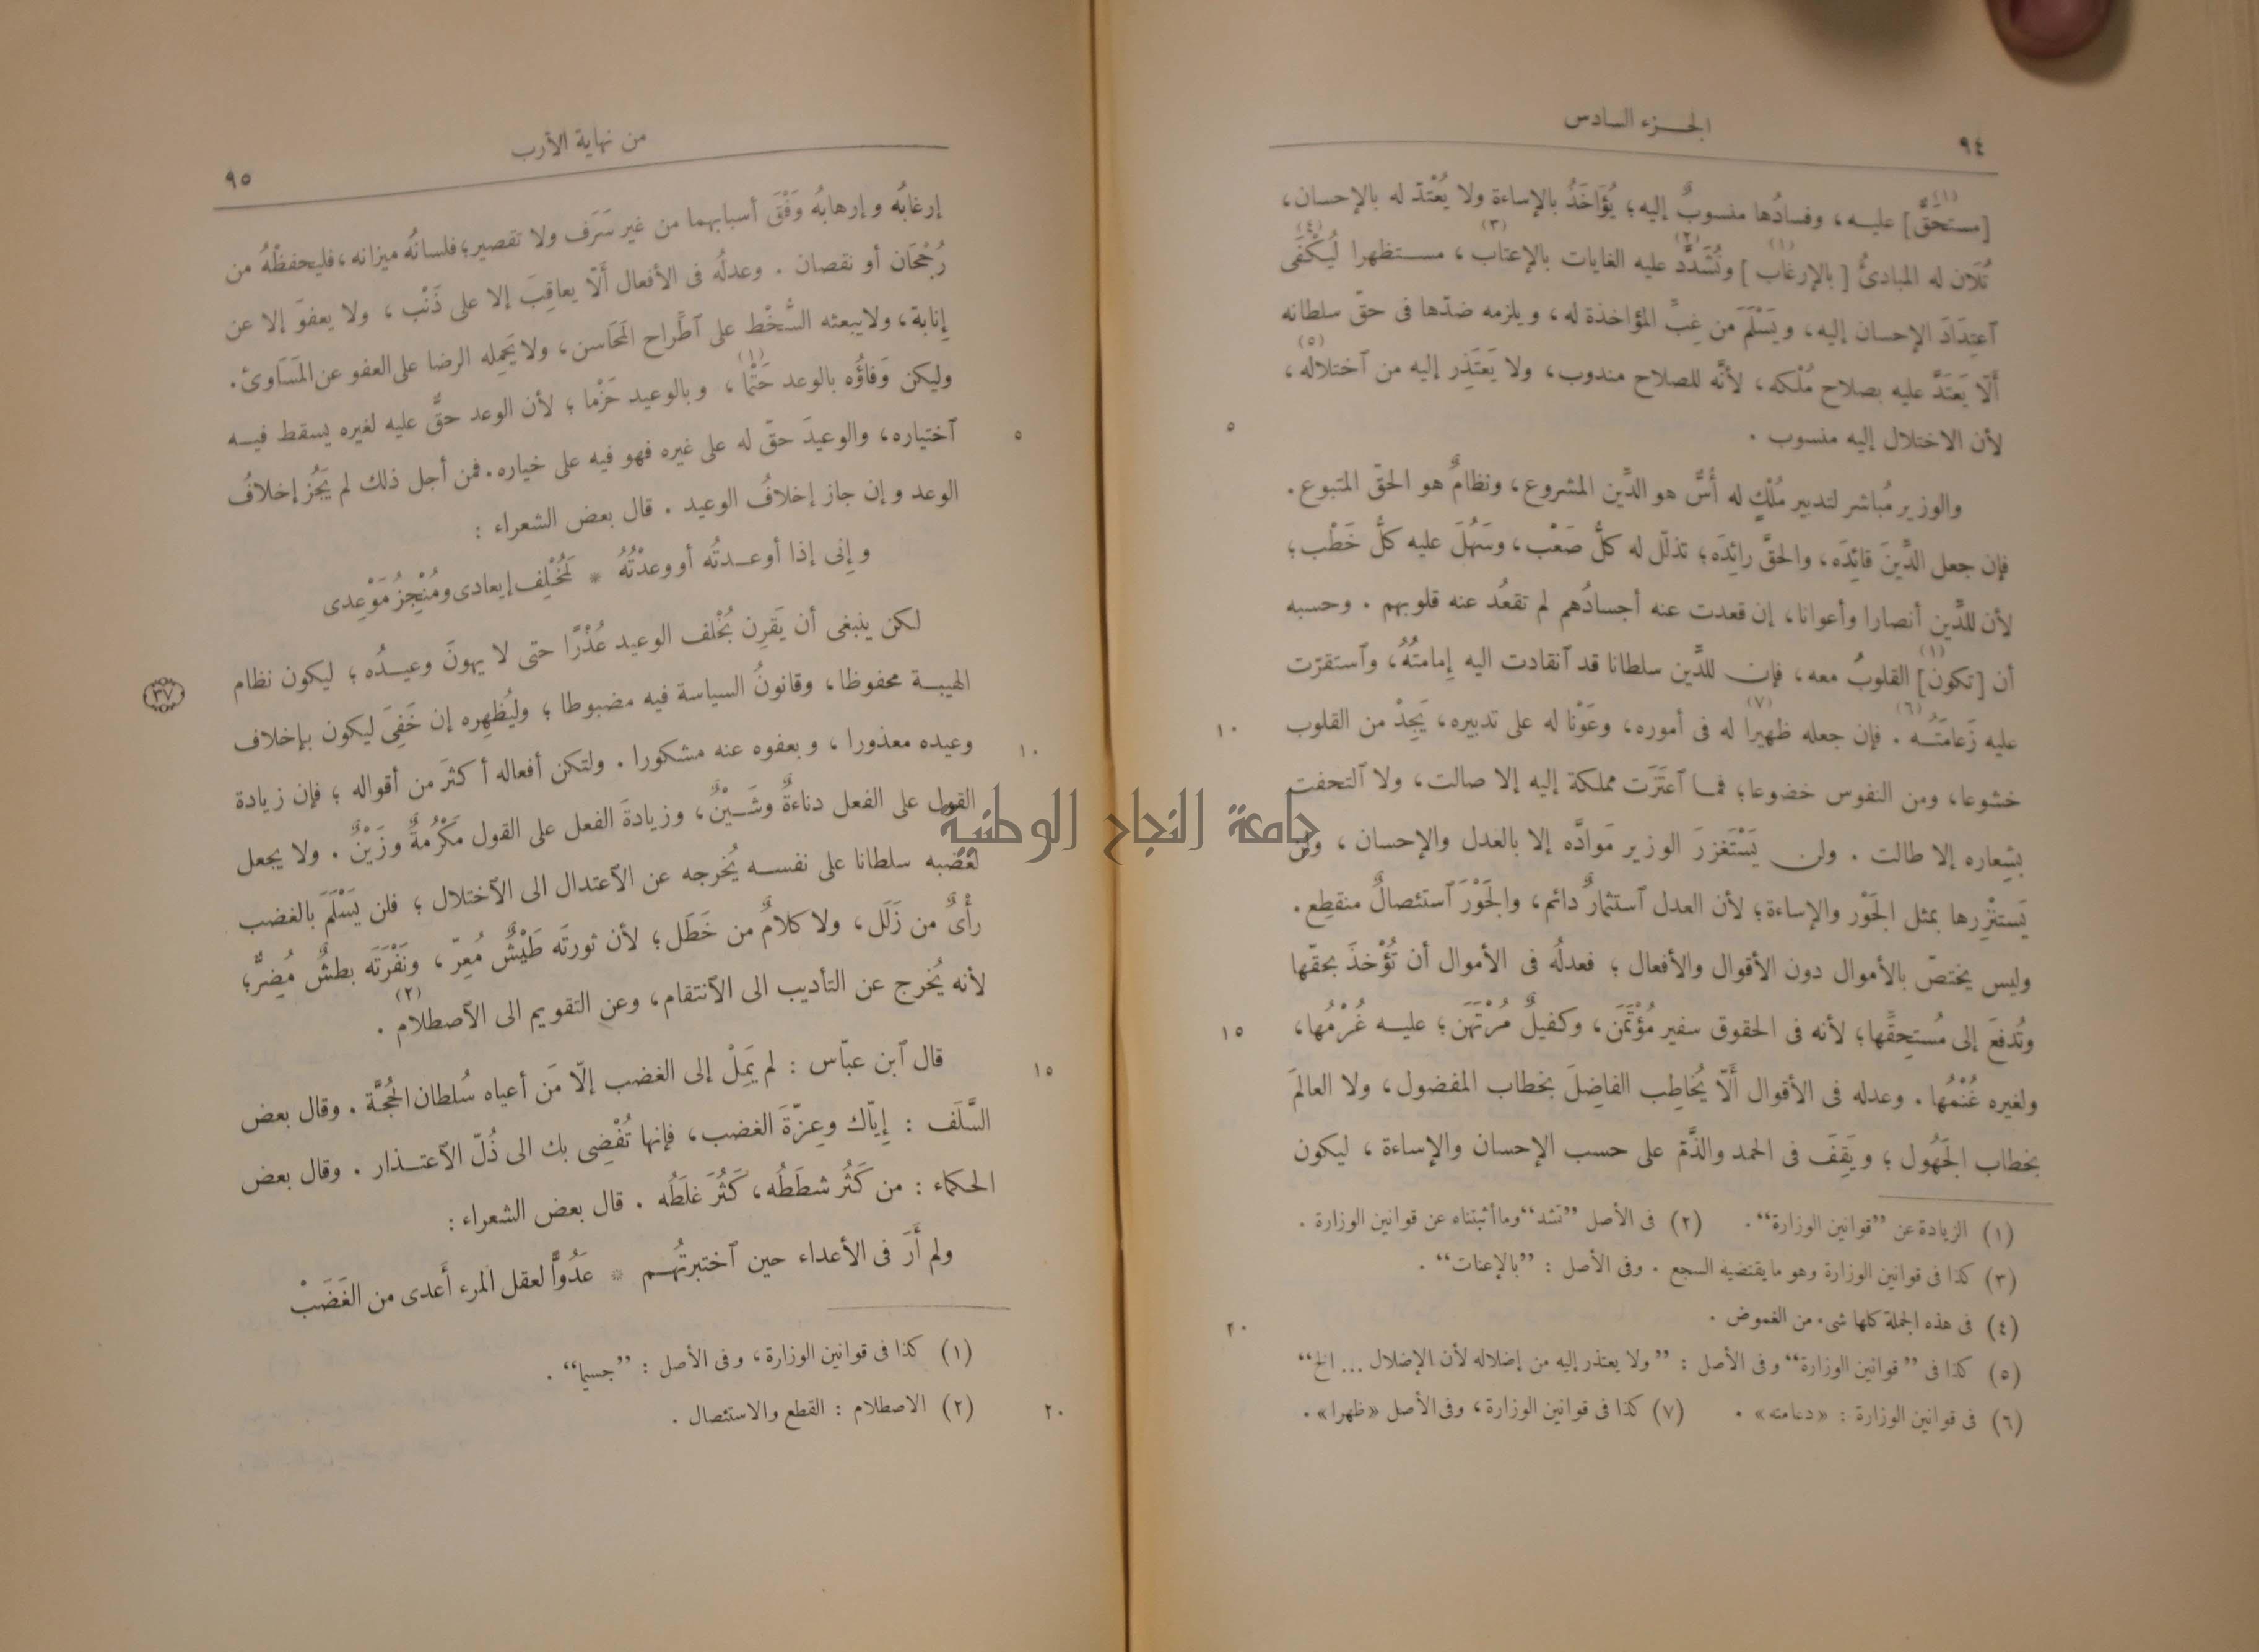 ٩٤
الجـــزء السادس
[مستحَقٌّ](١) عليـــه، وفسادُها منسوبٌ إليه؛ يُؤَاخَذُ بالإساءة ولا يُعْتَدّ له بالإحسان،
تُلَان له المبادئُ [بالإرغاب](١) وتُشَدَّدُ(٢) عليه الغايات بالإعتاب(٣)، مستظهرا لِيُكْفَى(٤)
اَعتِدَادَ الإحسان إليه، ويَسْلَمَ من غِبِّ المؤاخذة له، ويلزمه ضدّها فى حقّ سلطانه
أَلّا يَعتَدَّ عليه بصلاح مُلْكه، لأنَّه للصلاح مندوب، ولا يَعتَذِر إليه من اَختلاله(٥)،
لأن الاختلال إليه منسوب .
٥
والوزير مُباشر لتدبير مُلْكٍ له أُسٌّ هو الدِّين المشروع، ونظامٌ هو الحقّ المتبوع.
فإن جعل الدِّينَ قائِدَه، والحقَّ رائِدَه؛ تذلّل له كلُّ صَعْب، وسَهُلَ عليه كلُّ خَطْب؛
لأن للدِّين أنصارا وأعوانا، إن قعدت عنه أجسادُهم لم تقعُد عنه قلوبهم . وحسبه
أن [تكون](١) القلوبُ معه، فإن للدِّين سلطانا قد اَنقادت اليه إمامتُهُ، واَستقرّت
عليه زَعامَتُـــه(٦) . فإن جعله ظهيرا(٧) له فى أموره، وعَوْنا له على تدبيره، يَجِدْ من القلوب
١٠
خشوعا، ومن النفوس خضوعا؛ فمـا اَعتَزَت مملكة إليه إلا صالت، ولا اَلتحفت
بشِعاره إلا طالت . ولن يَسْتَغزرَ الوزير مَوادَّه إلا بالعدل والإحسان، ولن
يَستنْزِرها بمثل الجَوْر والإساءة؛ لأن العدل اَستثمارٌ دائم، والجَوْرَ اَستئصالٌ منقطِع.
وليس يختصّ بالأموال دون الأقوال والأفعال؛ فعدلُه فى الأموال أن تُؤْخذَ بحقّها
وتُدفعَ إلى مُستحِقِّها؛ لأنه فى الحقوق سفير مُؤْتَمَن، وكفيلٌ مُرْتَهَن؛ عليـــه غُرْمُها،
١٥
ولغيره غُنْمُها . وعدله فى الأقوال أَلّا يُخاطِب الفاضِلَ بخطاب المفضول، ولا العالمَ
بخطاب الجَهُول؛ ويَقِفَ فى الحمد والذَّمّ على حسب الإحسان والإساءة، ليكون
(١) الزيادة عن ”قوانين الوزارة“. (٢) فى الأصل ”تشد“ وما أثبتناه عن قوانين الوزارة .
(٣) كذا فى قوانين الوزارة وهو ما يقتضيه السجع . وفى الأصل : ”بالإعنات“ .
(٤) فى هذه الجملة كلها شىء من الغموض .
٢٠
(٥) كذا فى ”قوانين الوزارة“ وفى الأصل : ”ولا يعتذر إليه من إضلاله لأن الإضلال ... الخ“
(٦) فى قوانين الوزارة : «دعامته» . (٧) كذا فى قوانين الوزارة، وفى الأصل «ظهرا».
من نهاية الأرب
٩٥
إرغابُه وإرهابهُ وَفْقَ أسبابهما من غير سَرَف ولا تقصير؛ فلسانُه ميزانه، فليحفظْهُ من
رُجْحَان أو نقصان . وعدلُه فى الأفعال أَلّا يعاقِبَ إلا على ذَنْب، ولا يعفوَ إلا عن
إنابة، ولا يبعثه السُّخْط على اَطِّراح المَحَاسن، ولا يَحمِله الرضا على العفو عن المَسَاوئ.
وليكن وَفاؤُه بالوعد حَتْمًا(١)، وبالوعيد حَزْما؛ لأن الوعد حقٌّ عليه لغيره يسقط فيـــه
اَختياره، والوعيدَ حقّ له على غيره فهو فيه على خياره. فمن أجل ذلك لم يَجُز إخلافُ
٥
الوعد وإن جاز إخلافُ الوعيد . قال بعض الشعراء :
وإنى إذا أوعـــدتُه أو وعدْتُهُ * لَمُخْلِف إيعادى ومُنْجِزُ مَوْعِدى
لكن ينبغى أن يَقرِن بخُلْف الوعيد عُذْرًا حتى لا يهونَ وعيـــدُه؛ ليكون نظام
الهيبـــة محفوظا، وقانونُ السياسة فيه مضبوطا؛ وليُظهِره إن خَفِىَ ليكون بإخلاف
٣٧
وعيده معذورا، وبعفوه عنه مشكورا . ولتكن أفعاله أكثرَ من أقواله؛ فإن زيادة
١٠
القول على الفعل دناءةٌ وشَـــيْنٌ، وزيادةَ الفعل على القول مَكْرُمةٌ وزَيْنٌ . ولا يجعل
لغضبه سلطانا على نفســـه يُخرجه عن الاَعتدال الى الاَختلال؛ فلن يَسْلَمَ بالغضب
رأْىٌ من زَلَل، ولا كلامٌ من خَطَل؛ لأن ثورتَه طَيْشٌ مُعِرّ، ونَفْرَتَه بطشٌ مُضِرٌّ؛
لأنه يُخرج عن التأديب الى الاَنتقام، وعن التقويم الى الاَصطلام(٢) .
قال اَبن عبّاس : لم يَمِلْ إلى الغضب إلّا مَن أعياه سُلطان الحُجَّـة . وقال بعض
١٥
السَّلَف : إيّاك وعِزّةَ الغضب، فإنها تُفْضِى بك الى ذُلّ الاَعتـــذار . وقال بعض
الحكماء : من كَثُر شطَطُه، كَثُرَ غلَطُه . قال بعض الشعراء :
ولم أرَ فى الأعداء حين اَختبرتُهـــم * عَدُوًّا لعقل المرء أَعدى من الغَضَبْ
(١) كذا فى قوانين الوزارة، وفى الأصل : ”جسيما“ .
(٢) الاصطلام : القطع والاستئصال .
٢٠
جامعة النجاح الوطنية